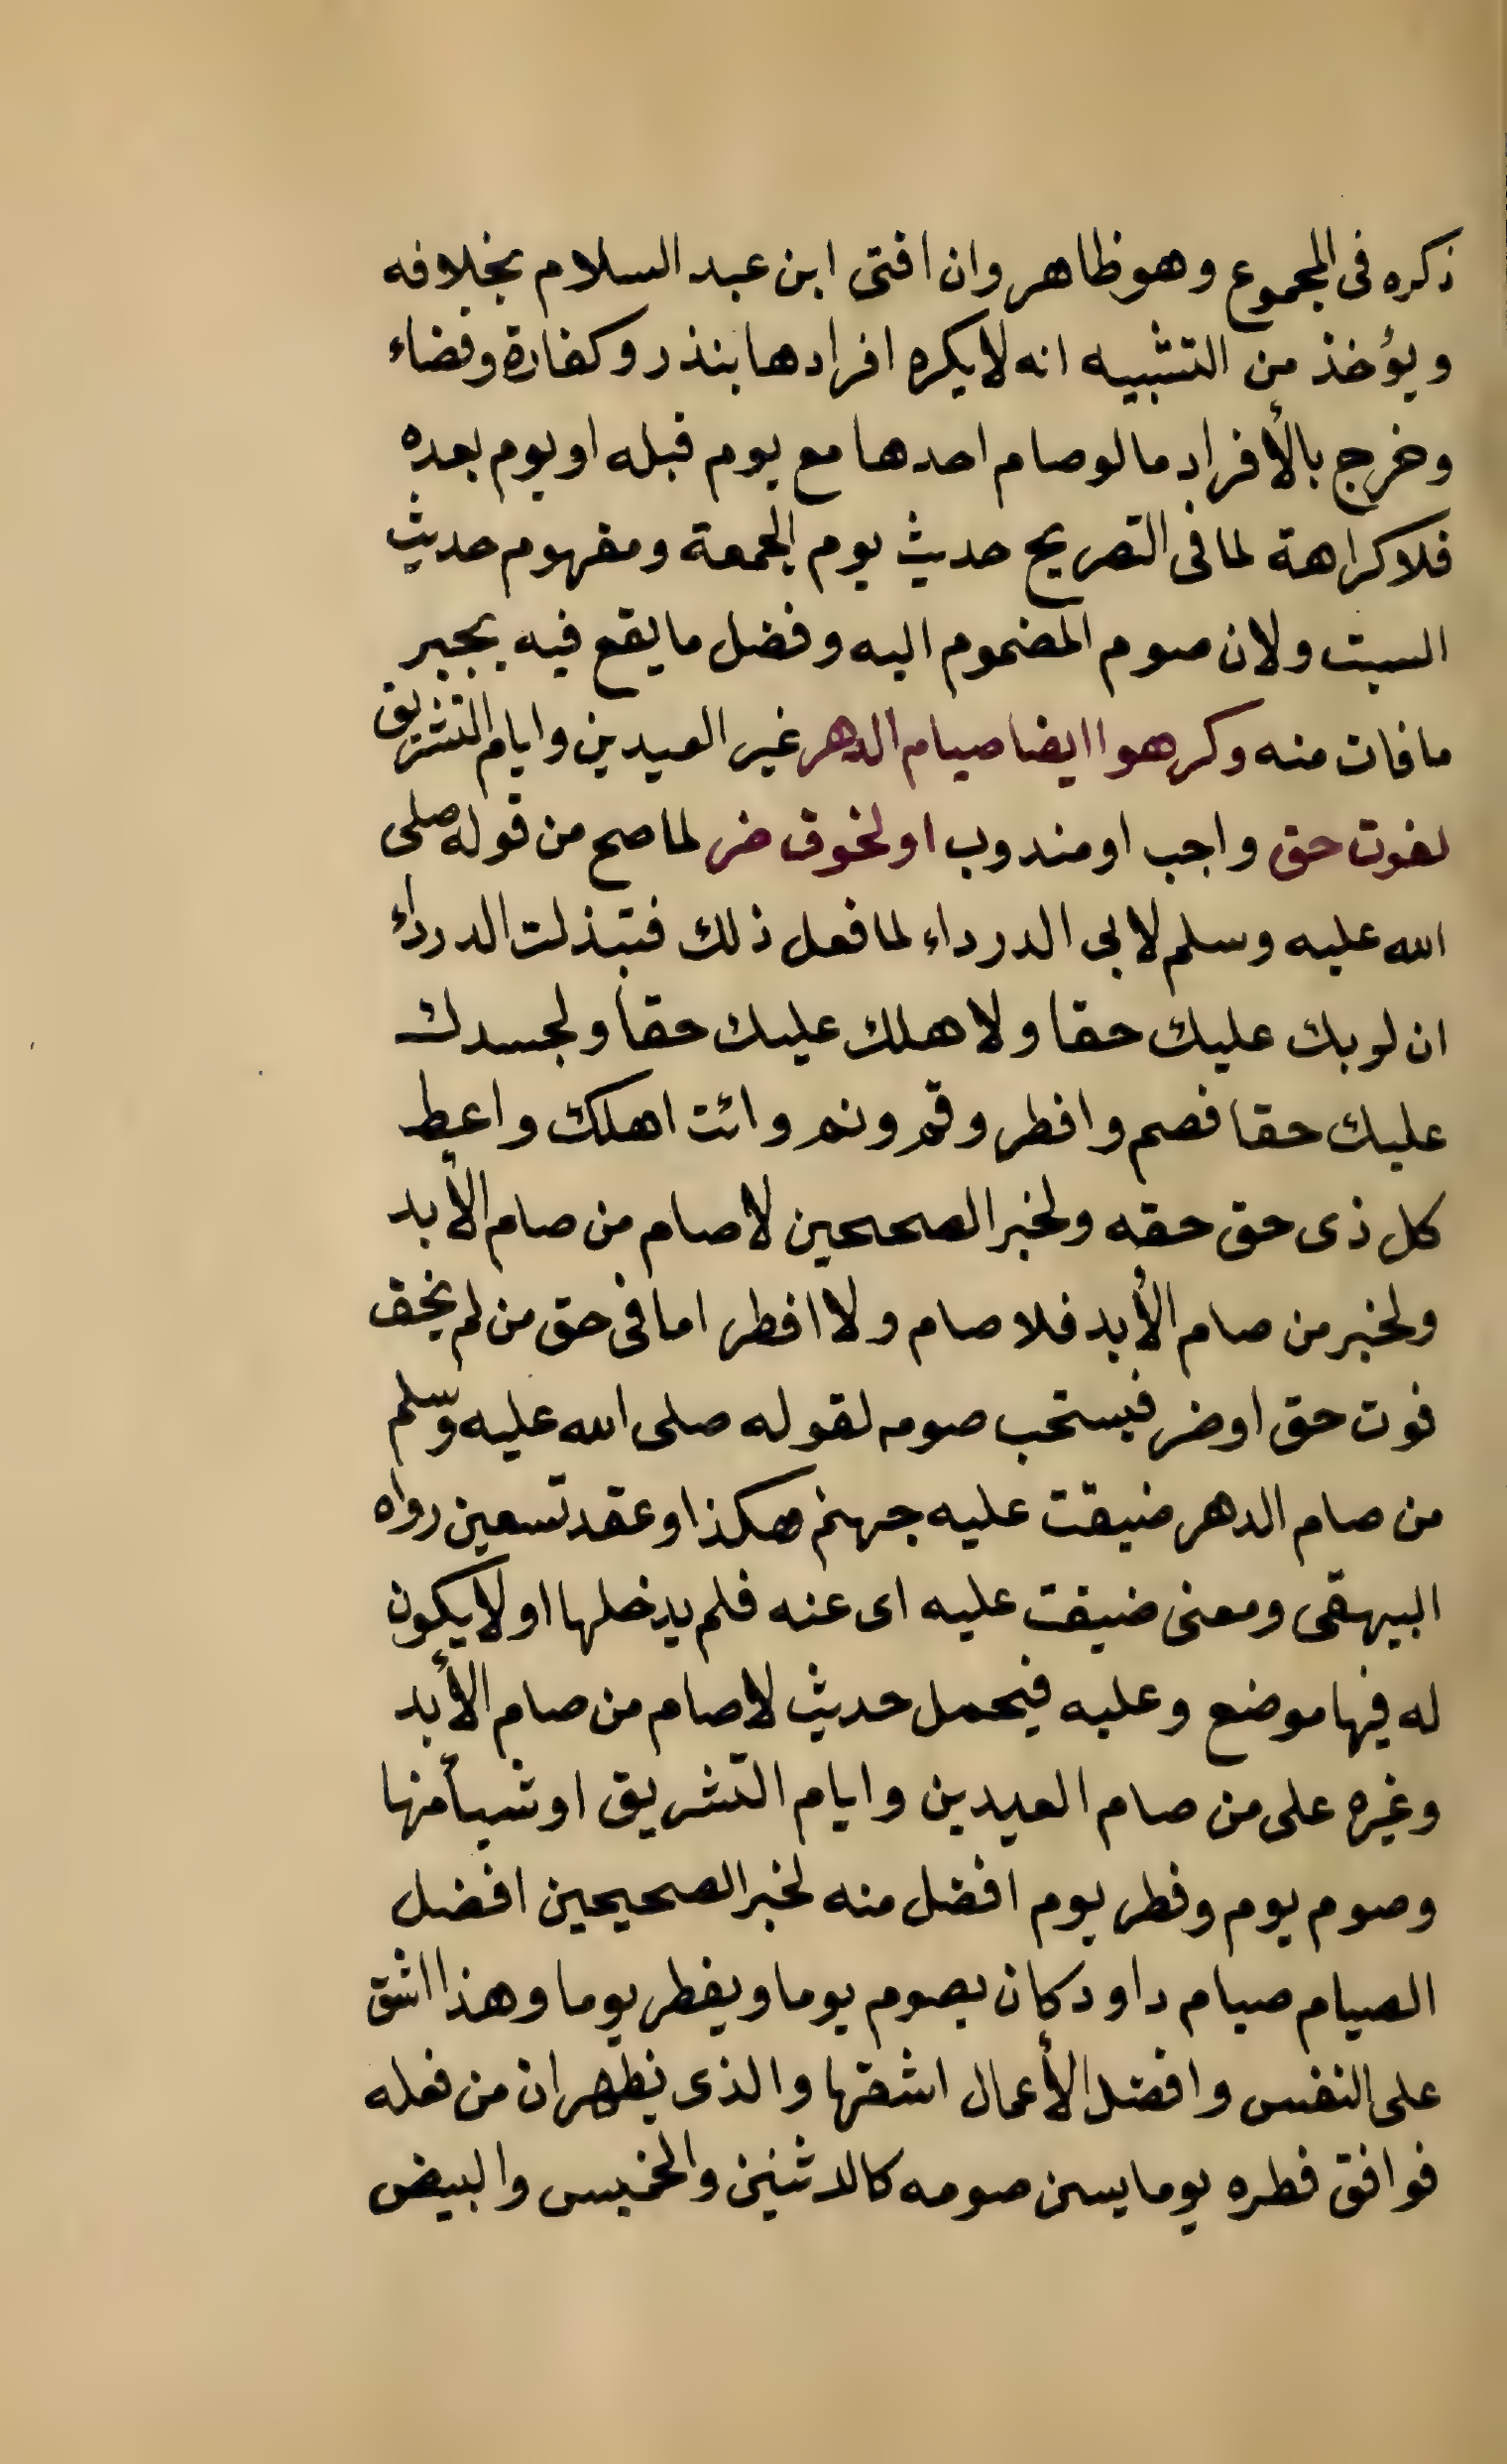 ذكره فى المجموع وهو ظاهر وان افتى ابن عبد السلام بخلافه
ويؤخذ من التشبيه انه لا يكره افرادها بنذر وكفارة وقضاء
وخرج بالأفراد ما لو صام احدها مع يوم قبله او يوم بعده
فلا كراهة لما فى التصريح حديث يوم الجمعة ومفهوم حديث
السبت ولان صوم المضموم اليه وفضل ما يقع فيه يجبر
ما فات منه وكرهوا ايضا صيام الدهر غير العيدين وايام التشريق
لفوت حق واجب او مندوب او لخوف ضر لما صح من قوله صلى
الله عليه وسلم لابى الدرداء لما فعل ذلك فتبذلت الدرداء
ان لربك عليك حقا ولاهلك عليك حقا ولجسدك
عليك حقا فصم وافطر وقم ونم وائت اهلك واعط
كل ذى حق حقه ولخبر الصححين لا صام من صام الأبد
ولخبر من صام الأبد فلا صام ولا افطر اما فى حق من لم يخف
فوت حق او ضر فيستحب صومه لقوله صلى الله عليه وسلم
من صام الدهر ضيقت عليه جهنم هكذا وعقد تسعين رواه
البيهقى ومعنى ضيقت عليه اى عنه فلم يدخلها او لا يكون
له فيها موضع وعليه فيحمل حديث لا صام من صام الأبد
وغيره على من صام العيدين وايام التشريق او شيأ منها
وصوم يوم وفطر يوم افضل منه لخبر الصحيحين افضل
الصيام صيام داود كان يصوم يوما ويفطر يوما وهذا اشق
على النفس وافضل الأعمال اشقها والذى يظهر ان من فعله
فوافق فطره يوما يسن صومه كالاثنين والخميس والبيض